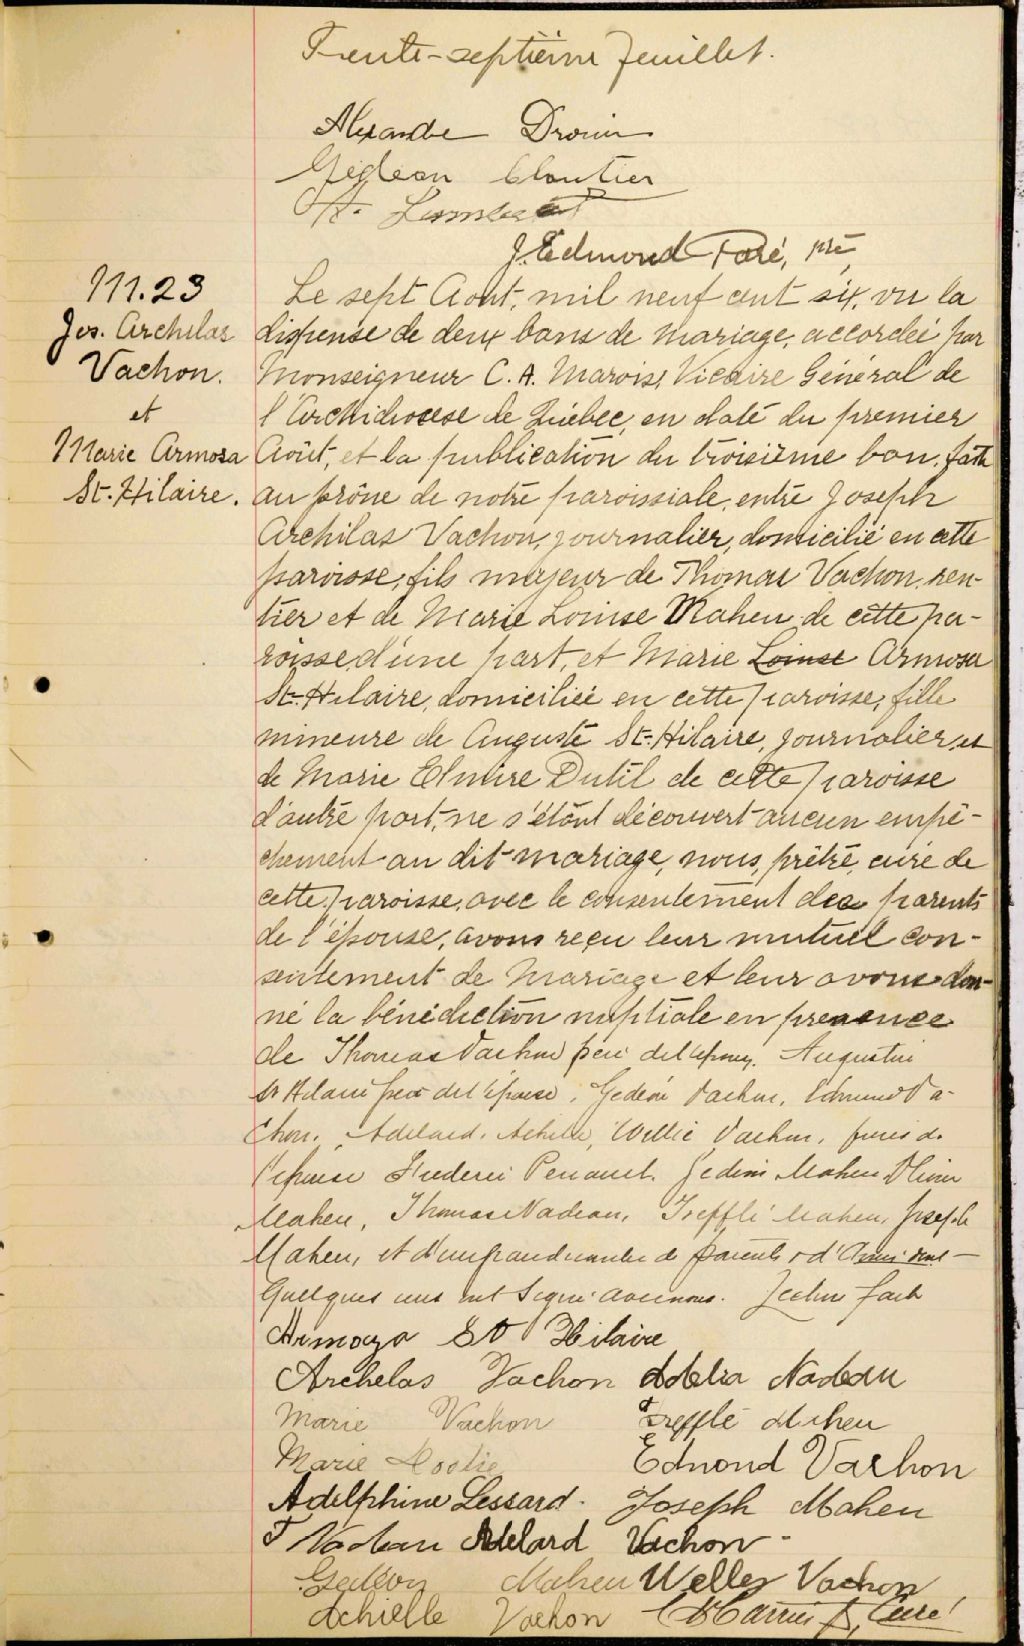 Trente-septième feuillet.
Alexandre Drouin
Gédéon Cloutier
J. Edmond Paré, ptre
M. 23
Jos. Archilas
Vachon.
et
Marie Armosa
St-Hilaire.
Le sept Août, mil neuf cent six, vu la
dispense de deux bans de mariage, accordée par
Monseigneur C. A. Marois, Vicaire Général de
l'Archidiocèse de Québec, en date du premier
Août, et la publication du troisième ban, faite
au prône de notre paroissiale, entre Joseph
Archilas Vachon, journalier, domicilié en cette
paroisse, fils majeur de Thomas Vachon, ren-
tier et de Marie Louise Maheu de cette pa-
roisse, d'une part, et Marie Louise Armosa
St-Hilaire, domiciliée en cette paroisse, fille
mineure de Auguste St-Hilaire, journalier, et
de Marie Elmire Dutil de cette paroisse
d'autre part, ne s'étant découvert aucun empê-
chement au dit mariage, nous, prêtre, curé de
cette paroisse, avec le consentement des parents
de l'épouse, avons reçu leur mutuel con-
sentement de mariage et leur avons don-
né la bénédiction nuptiale en presence
de Thomas Vachon père de l'epoux, Augustin
St Hilaire père de l'épouse, Gedeon Vachon, Edmond Va-
chon, Adelard, Achille, Willie Vachon, freres de
l'epouse Frederic Gedeon Maheu Olivier
Maheu, Thomas Nadeau, Treffle Maheu, Joseph
Maheu, et d'un grand nombre de parents & d'amis dont
Quelques uns ont signé avec nous. Lecture faite
Armoza St Hilaire
Archelas Vachon Adelia Nadeau
Marie Vachon Trefflé Maheu
Marie Edmond Vachon
Adelphine Lessard. Joseph Maheu
T Nadeau Adelard Vachon
Gedeon Maheu Welley Vachon
Achielle Vachon Ptre, Curé